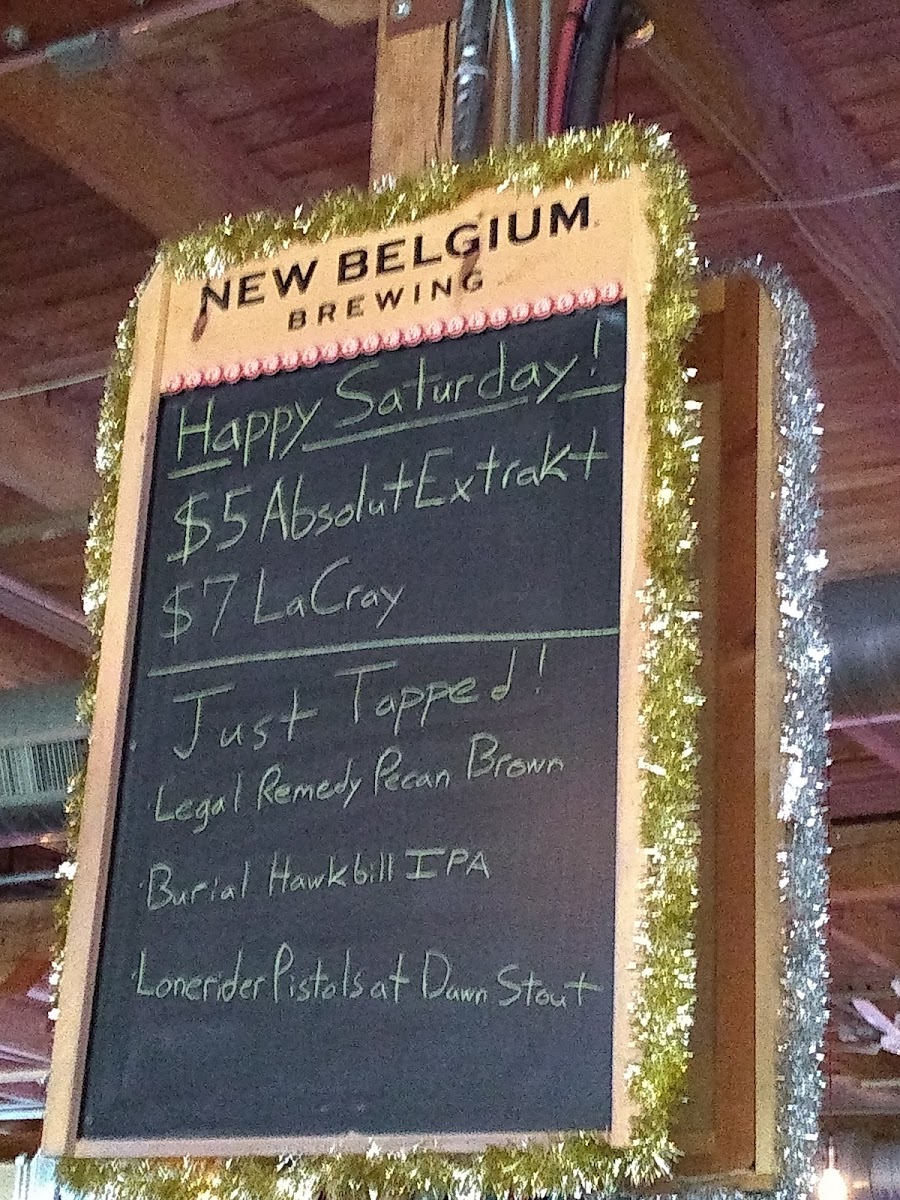 NEW BELGIUM
BREWING
Happy Saturday!
$5 Absolut Extrakt
$7 LaCray
Just Tapped!
Legal Remedy Pecan Brown
Burial Hawkbill IPA
Lonerider Pistols at Dawn Stout